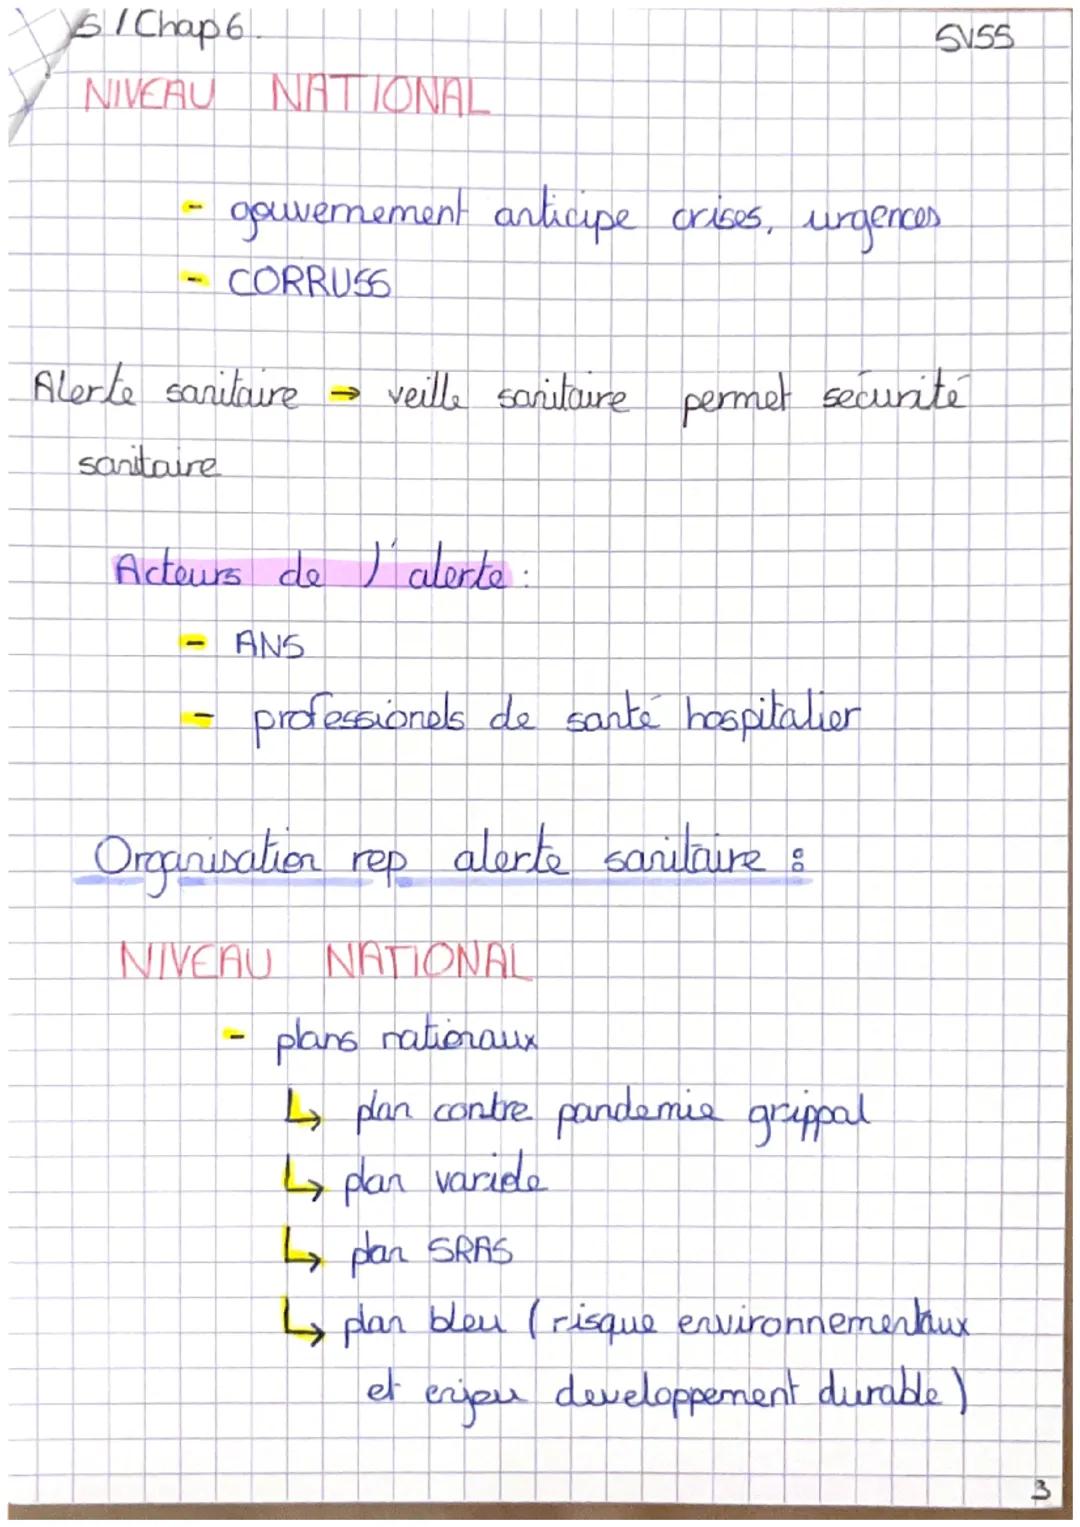 S / Chap 6.
SVSS
NIVEAU NATIONAL
- gouvernement anticipe crises, urgences
- CORRUSS
Alerte sanitaire → veille sanitaire permet sécurité
sanitaire
Acteurs de l'alerte :
- ANS
- professionels de santé hospitalier
Organisation rep alerte sanitaire :
NIVEAU NATIONAL
- plans nationaux
↳ plan contre pandemie grippal
↳ plan variole
↳ plan SRAS
↳ plan bleu (risque environnementaux
et enjeu developpement durable)
3